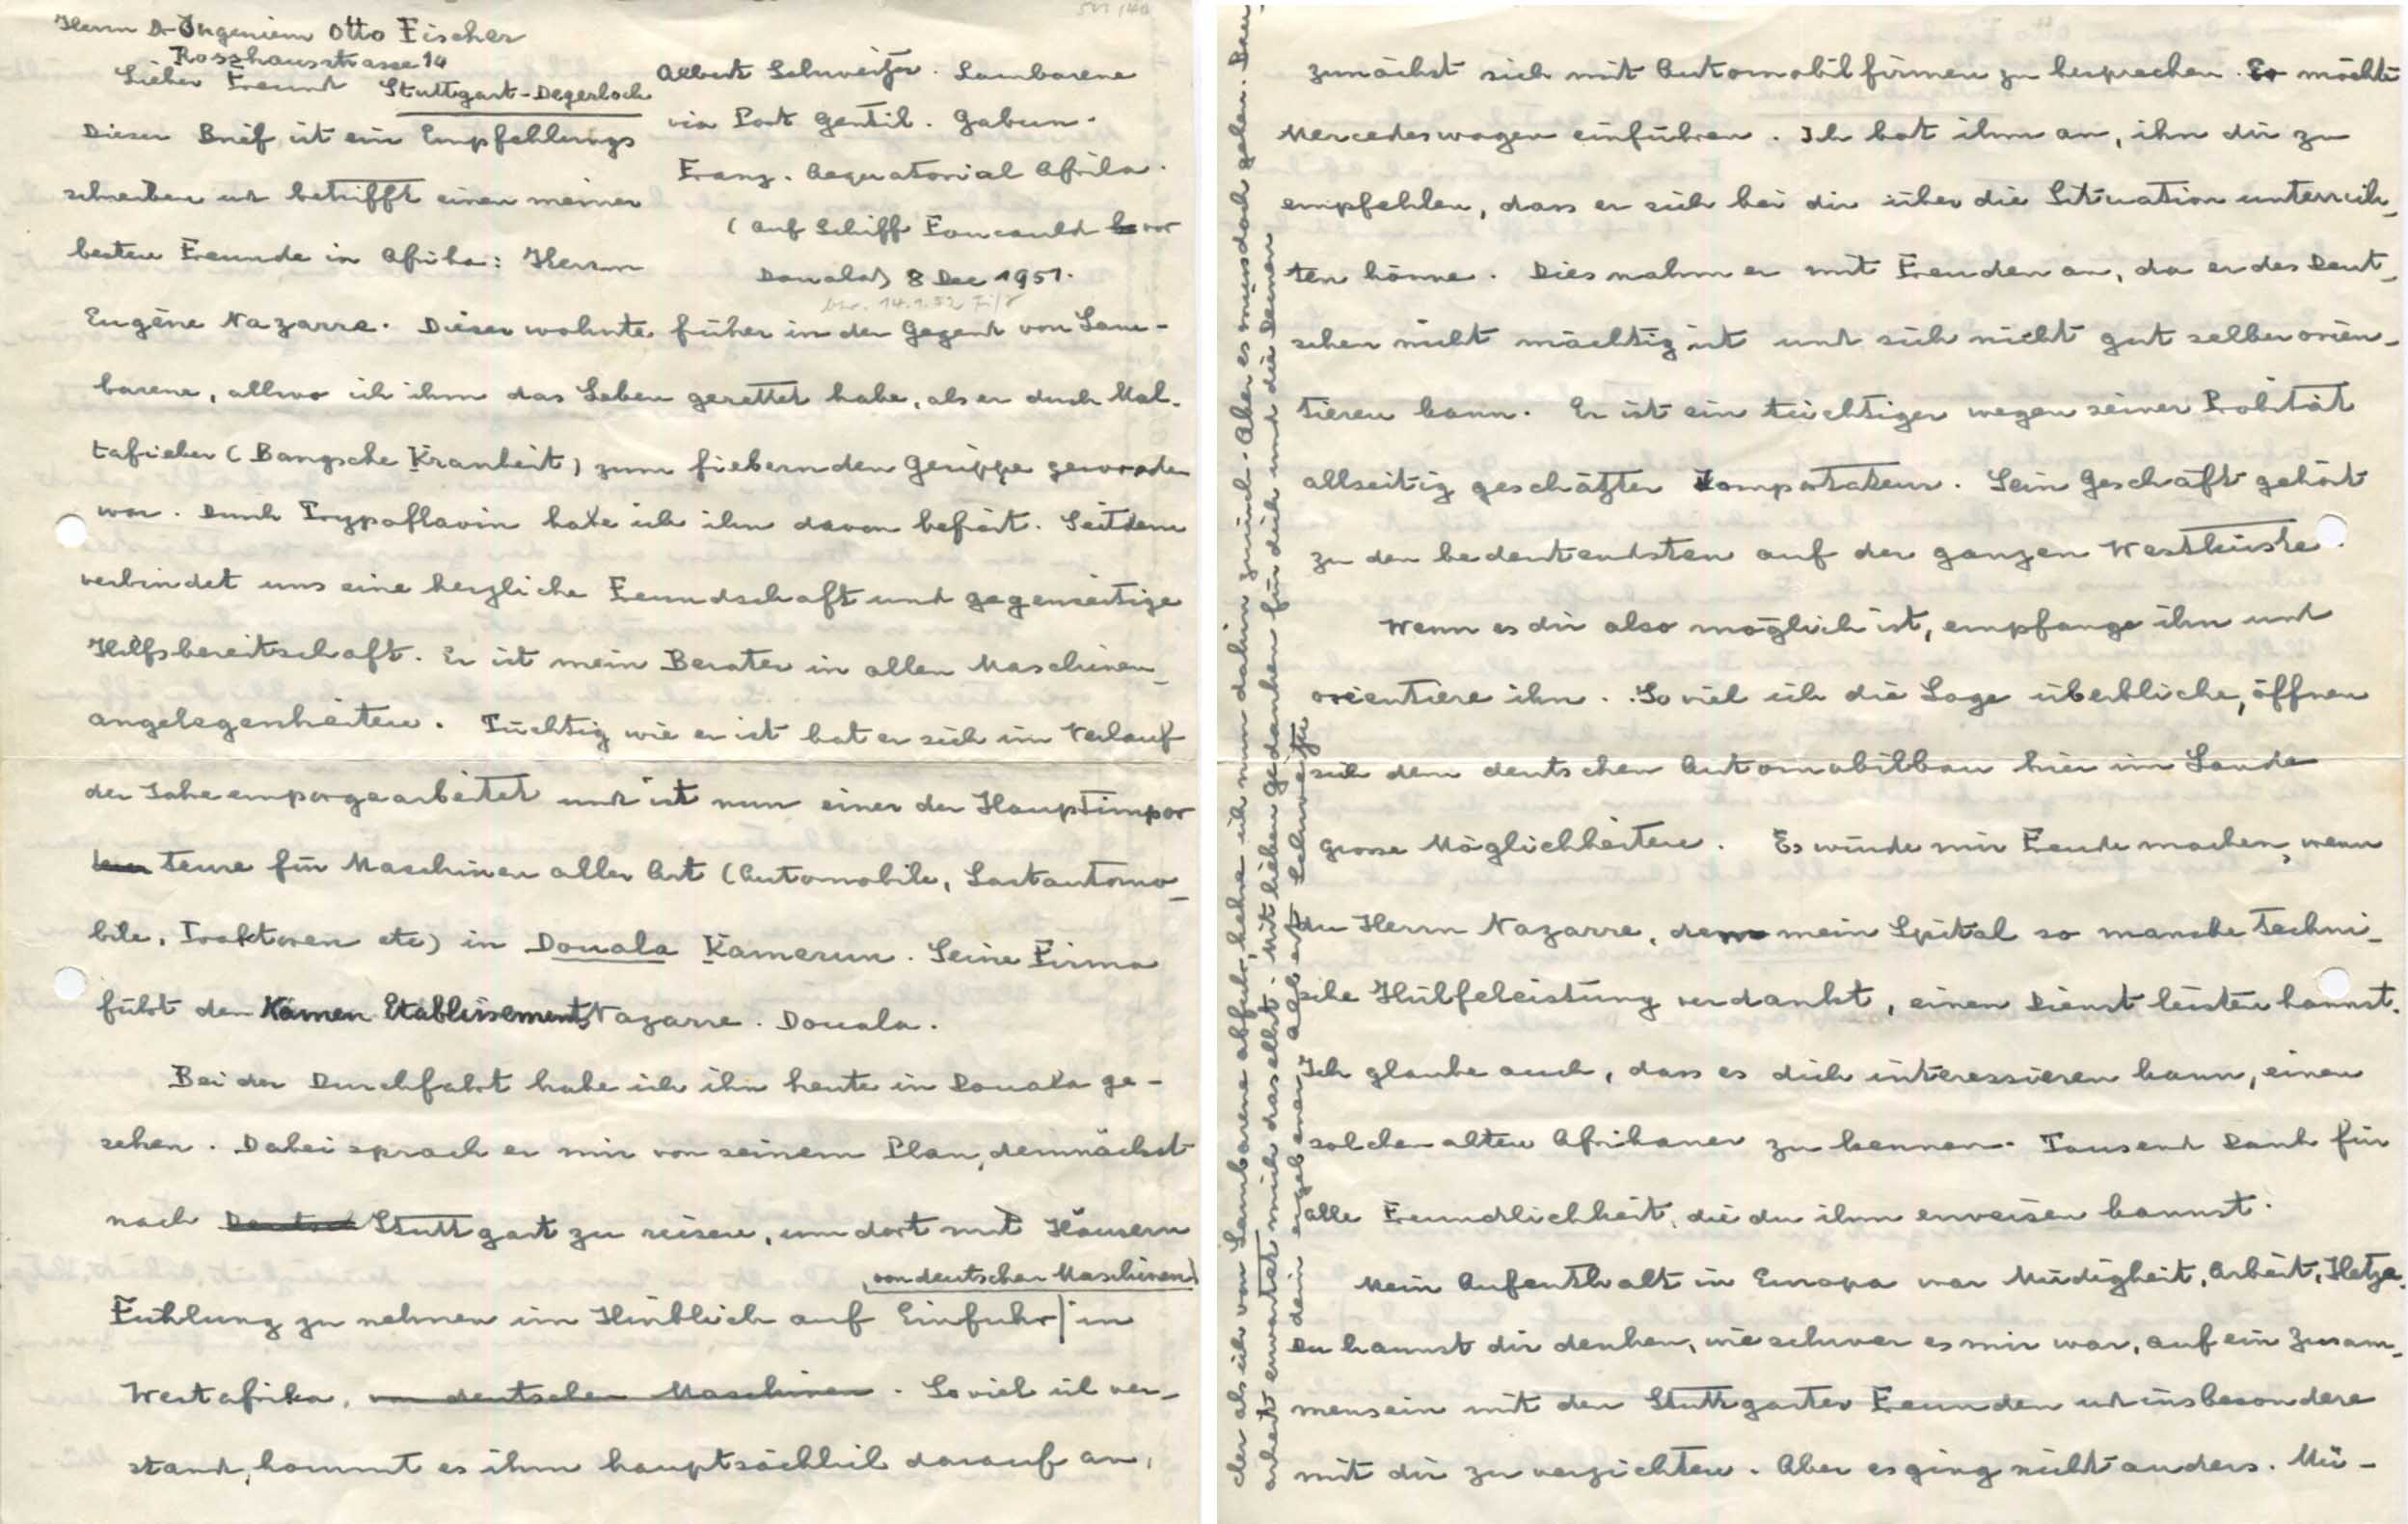 Herrn Dr Ingenieur Otto Fischer
Rosshausstrasse 14
Stuttgart-Degerloch
Albert Schweitzer. Lambarene
via Port Gentil. Gabun.
Franz. Aequatorial Afrika.
(auf Schiff Foucauld vor
Douala) 8 Dec 1951.
14.1.52
Lieber Freund
Dieser Brief ist ein Empfehlungs
schreiben und betrifft einen meiner
besten Freunde in Afrika: Herrn
Eugène Nazarre. Dieser wohnte früher in der Gegend von Lam-
barene, allwo ich ihm das Leben gerettet habe, als er durch Mal-
tafieber (Bangsche Krankheit) zum fiebernden Gerippe geworden
war. Durch Trypoflavin habe ich ihn davon befreit. Seitdem
verbindet uns eine herzliche Freundschaft und gegenseitige
Hilfsbereitschaft. Er ist mein Berater in allen Maschinen-
angelegenheiten. Tüchtig wie er ist hat er sich im Verlauf
der Jahre emporgearbeitet und ist nun einer der Hauptimpor
teure für Maschinen aller Art (Automobile, Lastautomo-
bile, Traktoren etc) in Douala Kamerun. Seine Firma
führt den Namen Etablissement Nazarre. Douala.
Bei der Durchfahrt habe ich ihn heute in Douala ge-
sehen. Dabei sprach er mir von seinem Plan, demnächst
nach Deutsch Stuttgart zu reisen, um dort mit Häusern
von deutschen Maschinen
Fühlung zu nehmen im Hinblick auf Einfuhr in
Westafrika, von deutschen Maschinen. Soviel ich ver-
stand, kommt es ihm hauptsächlich darauf an,
zunächst sich mit Automobilfirmen zu besprechen. Er möchte
Mercedeswagen einführen. Ich bot ihm an, ihn dir zu
empfehlen, dass er sich bei dir über die Situation unterrich-
ten könne. Dies nahm er mit Freuden an, da er des Deut-
schen nicht mächtig ist und sich nicht gut selber orien-
tieren kann. Er ist ein tüchtiger wegen seiner Probität
allseitig geschätzter Importateur. Sein Geschäft gehört
zu den bedeutendsten auf der ganzen Westküste.
Wenn es dir also möglich ist, empfange ihn und
orientiere ihn. So viel ich die Lage überblicke, öffnen
sich dem deutschen Automobilbau hier im Lande
grosse Möglichkeiten. Es würde mir Freude machen, wenn
du Herrn Nazarre, dem mein Spital so manche techni-
sche Hülfeleistung verdankt, einen Dienst leisten kannst.
Ich glaube auch, dass es dich interessieren kann, einen
solchen alten Afrikaner zu kennen. Tausend Dank für
alle Freundlichkeit, die du ihm erweisen kannst.
Mein Aufenthalt in Europa war Müdigkeit, Arbeit, Hetze.
Du kannst dir denken, wie schwer es mir war, auf ein Zusam-
mensein mit den Stuttgarter Freunden und insbesondere
mit dir zu verzichten. Aber es ging nicht anders. Mü-
der als ich von Lambarene abfuhr, kehre ich nun dahin zurück. Aber es muss doch gehen. Der
arbeit erwartet mich daselbst. Mit lieben Gedanken für dich und die Deinen
dein ergebener Albert Schweitzer